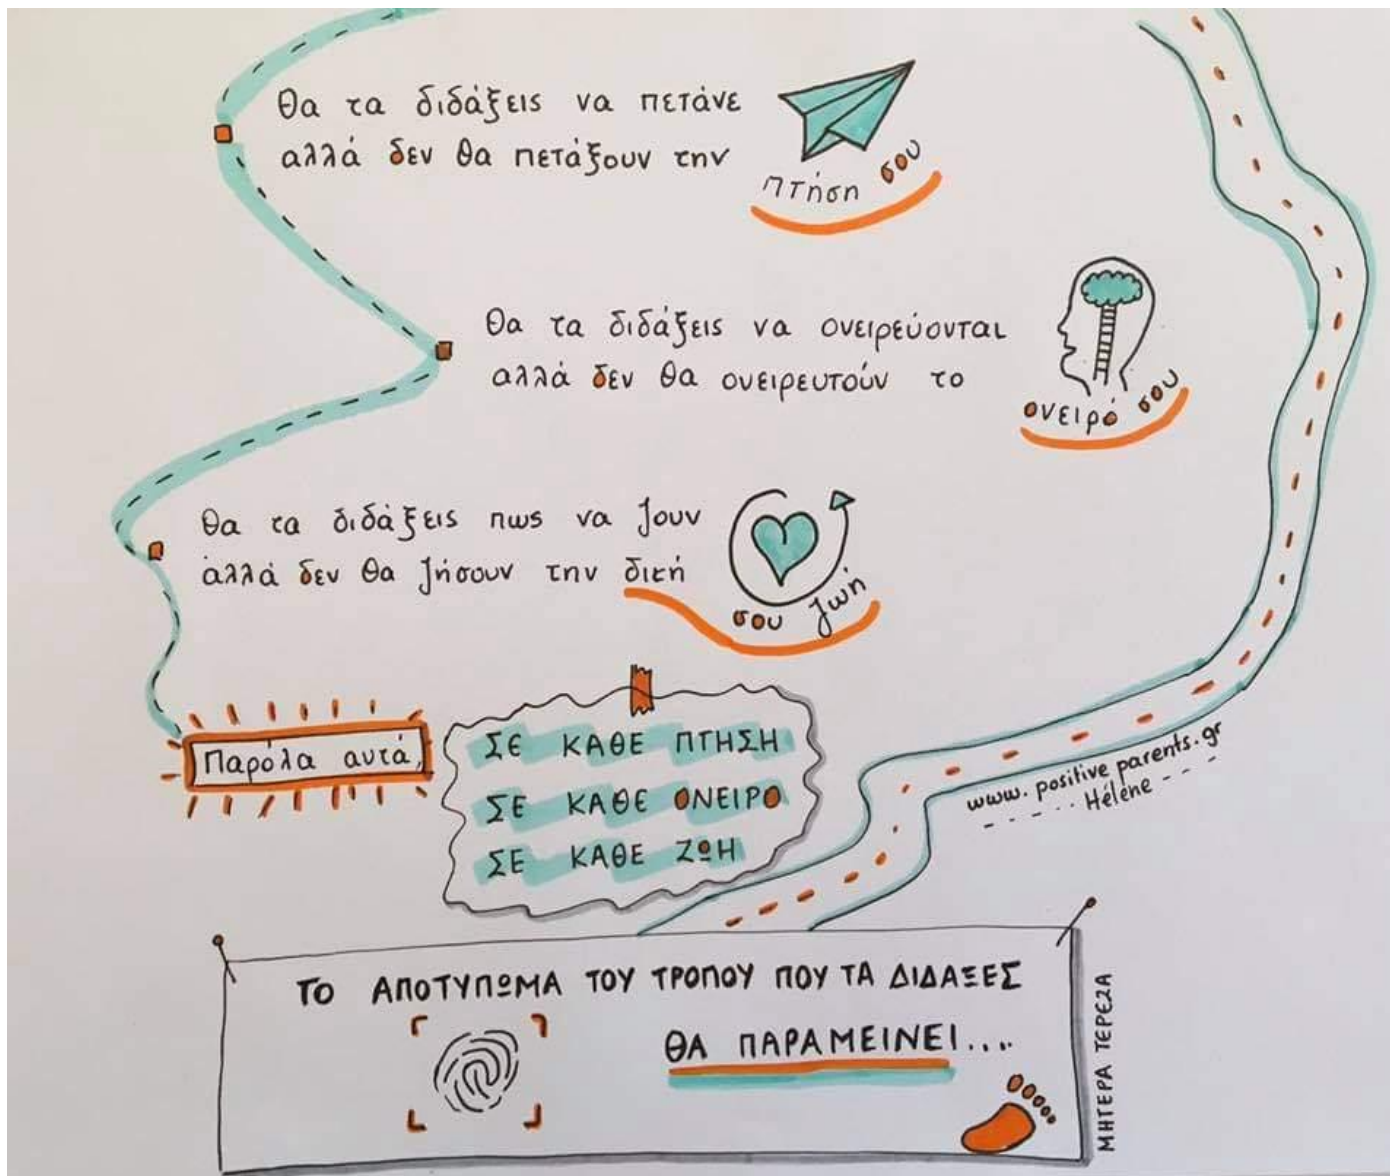 Θα τα διδάξεις να πετάνε
αλλά δεν θα πετάξουν την
πτήση σου
Θα τα διδάξεις να ονειρεύονται
αλλά δεν θα ονειρευτούν το
ονειρό σου
Θα τα διδάξεις πως να ζουν
αλλά δεν θα ζήσουν την δική
σου ζωή
Παρόλα αυτά,
ΣΕ ΚΑΘΕ ΠΤΗΣΗ
ΣΕ ΚΑΘΕ ΟΝΕΙΡΟ
ΣΕ ΚΑΘΕ ΖΩΗ
www.positiveparents.gr
Hélène
ΤΟ ΑΠΟΤΥΠΩΜΑ ΤΟΥ ΤΡΟΠΟΥ ΠΟΥ ΤΑ ΔΙΔΑΞΕΣ
ΘΑ ΠΑΡΑΜΕΙΝΕΙ....
ΜΗΤΕΡΑ ΤΕΡΕΖΑ